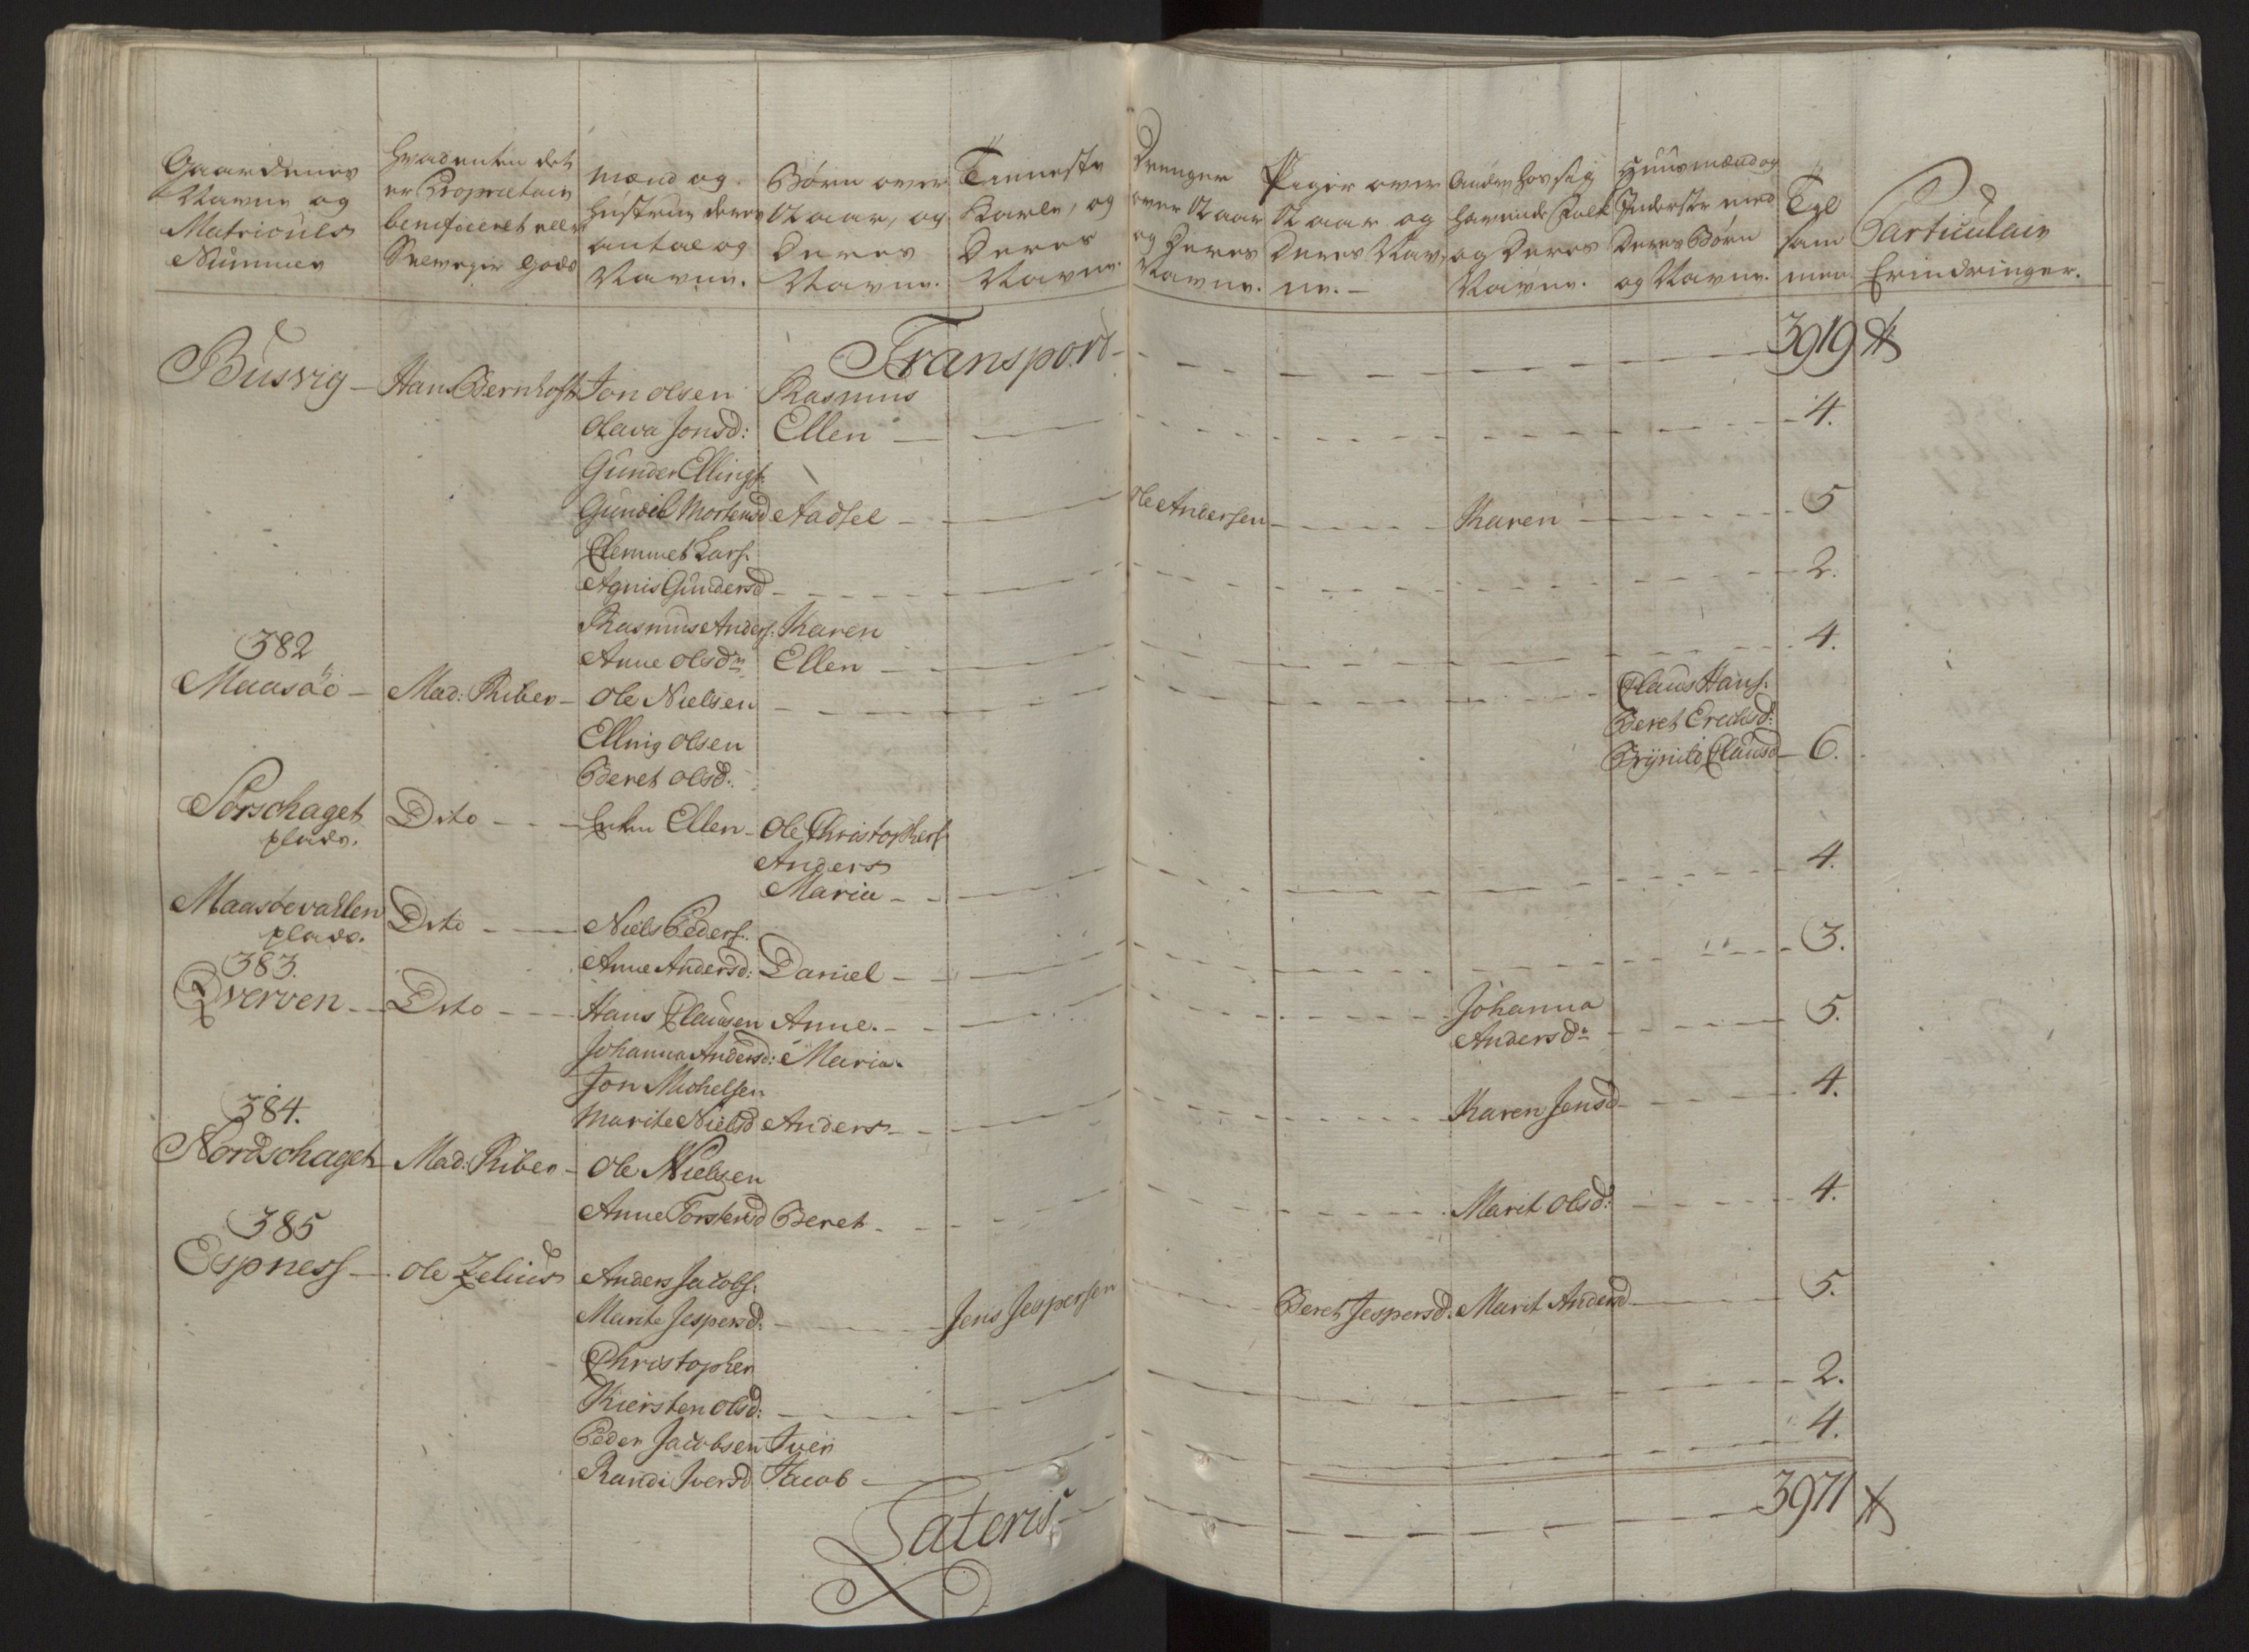 Gaardenes
Navne og
Matriculs
Nummer
Hvad enten det
er Proprietair
beneficeret eller
Selveyer Gods
Mænd og
Hustruer deres
antal og
Navne.
Børn over
12 aar, og
Deres
Navne.
Tienneste
Karle, og
Deres
Navne.
Drenger
over 12 aar
og Deres
Navne.
Piger over
12 aar og
Deres Nav
ne. —
Andre hos sig
havende Folk
og Deres
Navne.
Huusmænd og
Inderster med
Deres Børn
og Navne.
Til
sam
men.
Particulair
Erindringer.
Transport - - - 3919
Busvig - Hans Bernhoft Jon Olsen Rasmus
Olava Jonsd: Ellen - - - 4.
Gunder Ellings:
Gundel Mortensd Aadsel - - Ole Andersen - - Karen - - 5
Clemmet Lars:
Agnis Gundersd - - - 2.
Rasmus Anders: Karen
382
Anne Olsdr Ellen - - - 4.
Maasöe - Mad: Riber - Ole Nielsen - - - Claus Hans:
Elling Olsen Beret Erechsd:
Beret Olsd: Brynild Clausd - 6.
Sörschaget Dito - - Enken Ellen - Ole Christophers:
plads. Anders
Maria - - - 4.
Maasöevallen Dito - - Niels Peders:
plads.
Anne Andersd: Daniel - - - 3.
383.
Qverven - - Dito - - Hans Clausen Anne. - - Johanna
Johanna Andersd: Maria. Andersdr - - 5.
Jon Michelsen
384.
Marite Nielsd Anders - - Karen Jensd - - 4.
Nordschaget Mad: Riber - Ole Nielsen
Anne Torstensd Beret - - Marit Olsd: - - 4.
385
Espness - Ole Zelius Anders Jacobs:
Marite Jespersd: - - Jens Jespersen - - Beret Jespersd: Marit Andersd - - 5.
Christopher
Kiersten Olsd: - - - 2.
Peder Jacobsen Iver
Randi Iversd Jacob - - - 4.
Lateris - - - 3971